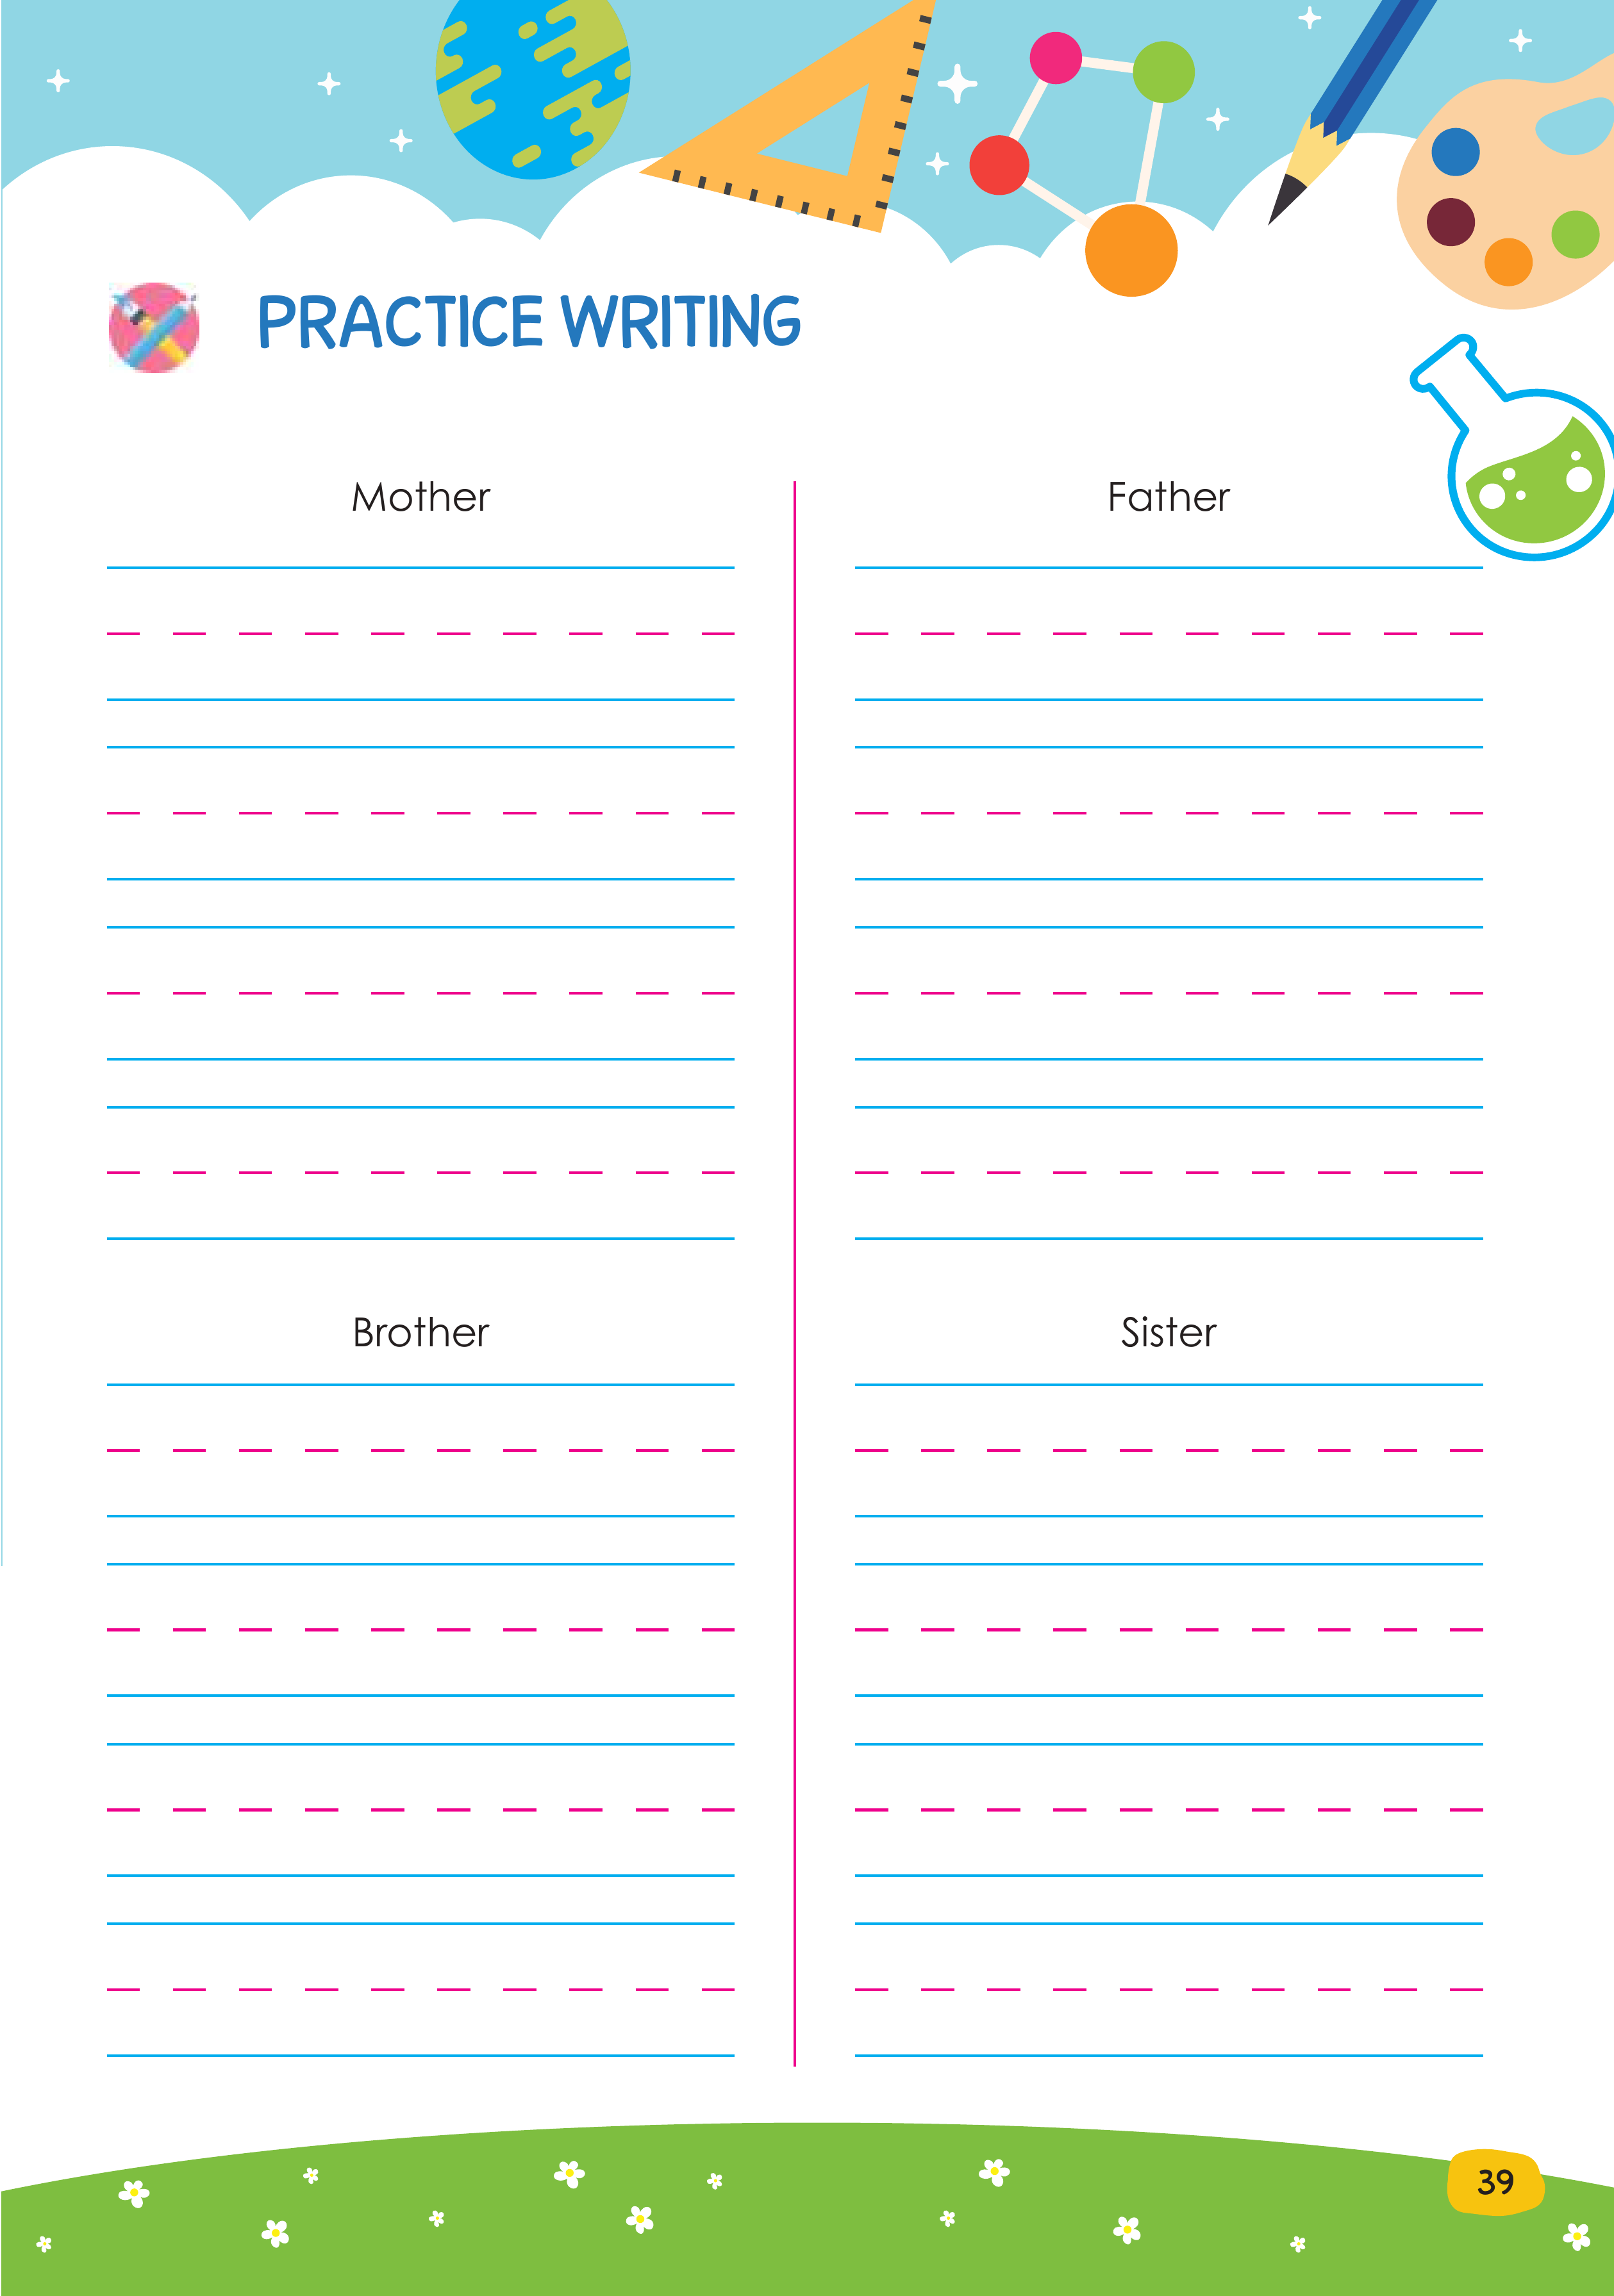 PRACTICE WRITING
Mother
Father
Brother
Sister
39